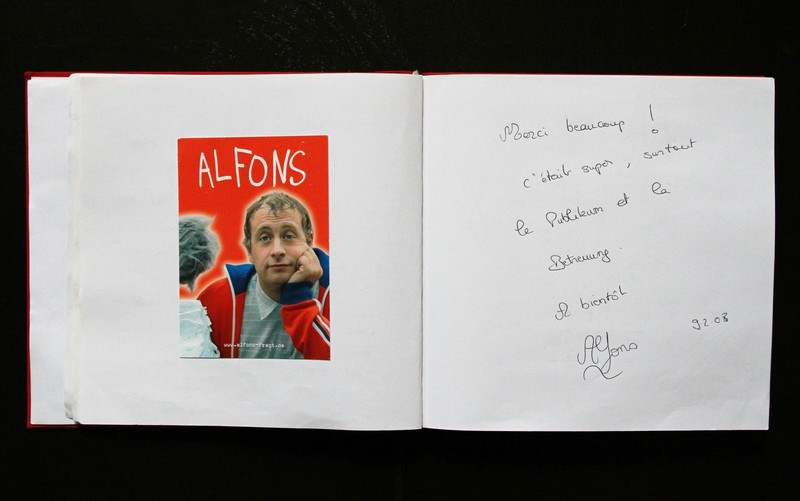 ALFONS
www.alfons-fragt.de
Merci beaucoup !
c'était super, surtout
le Publikum et la
Betreuung.
A bientôt
Alfons
9.2.08